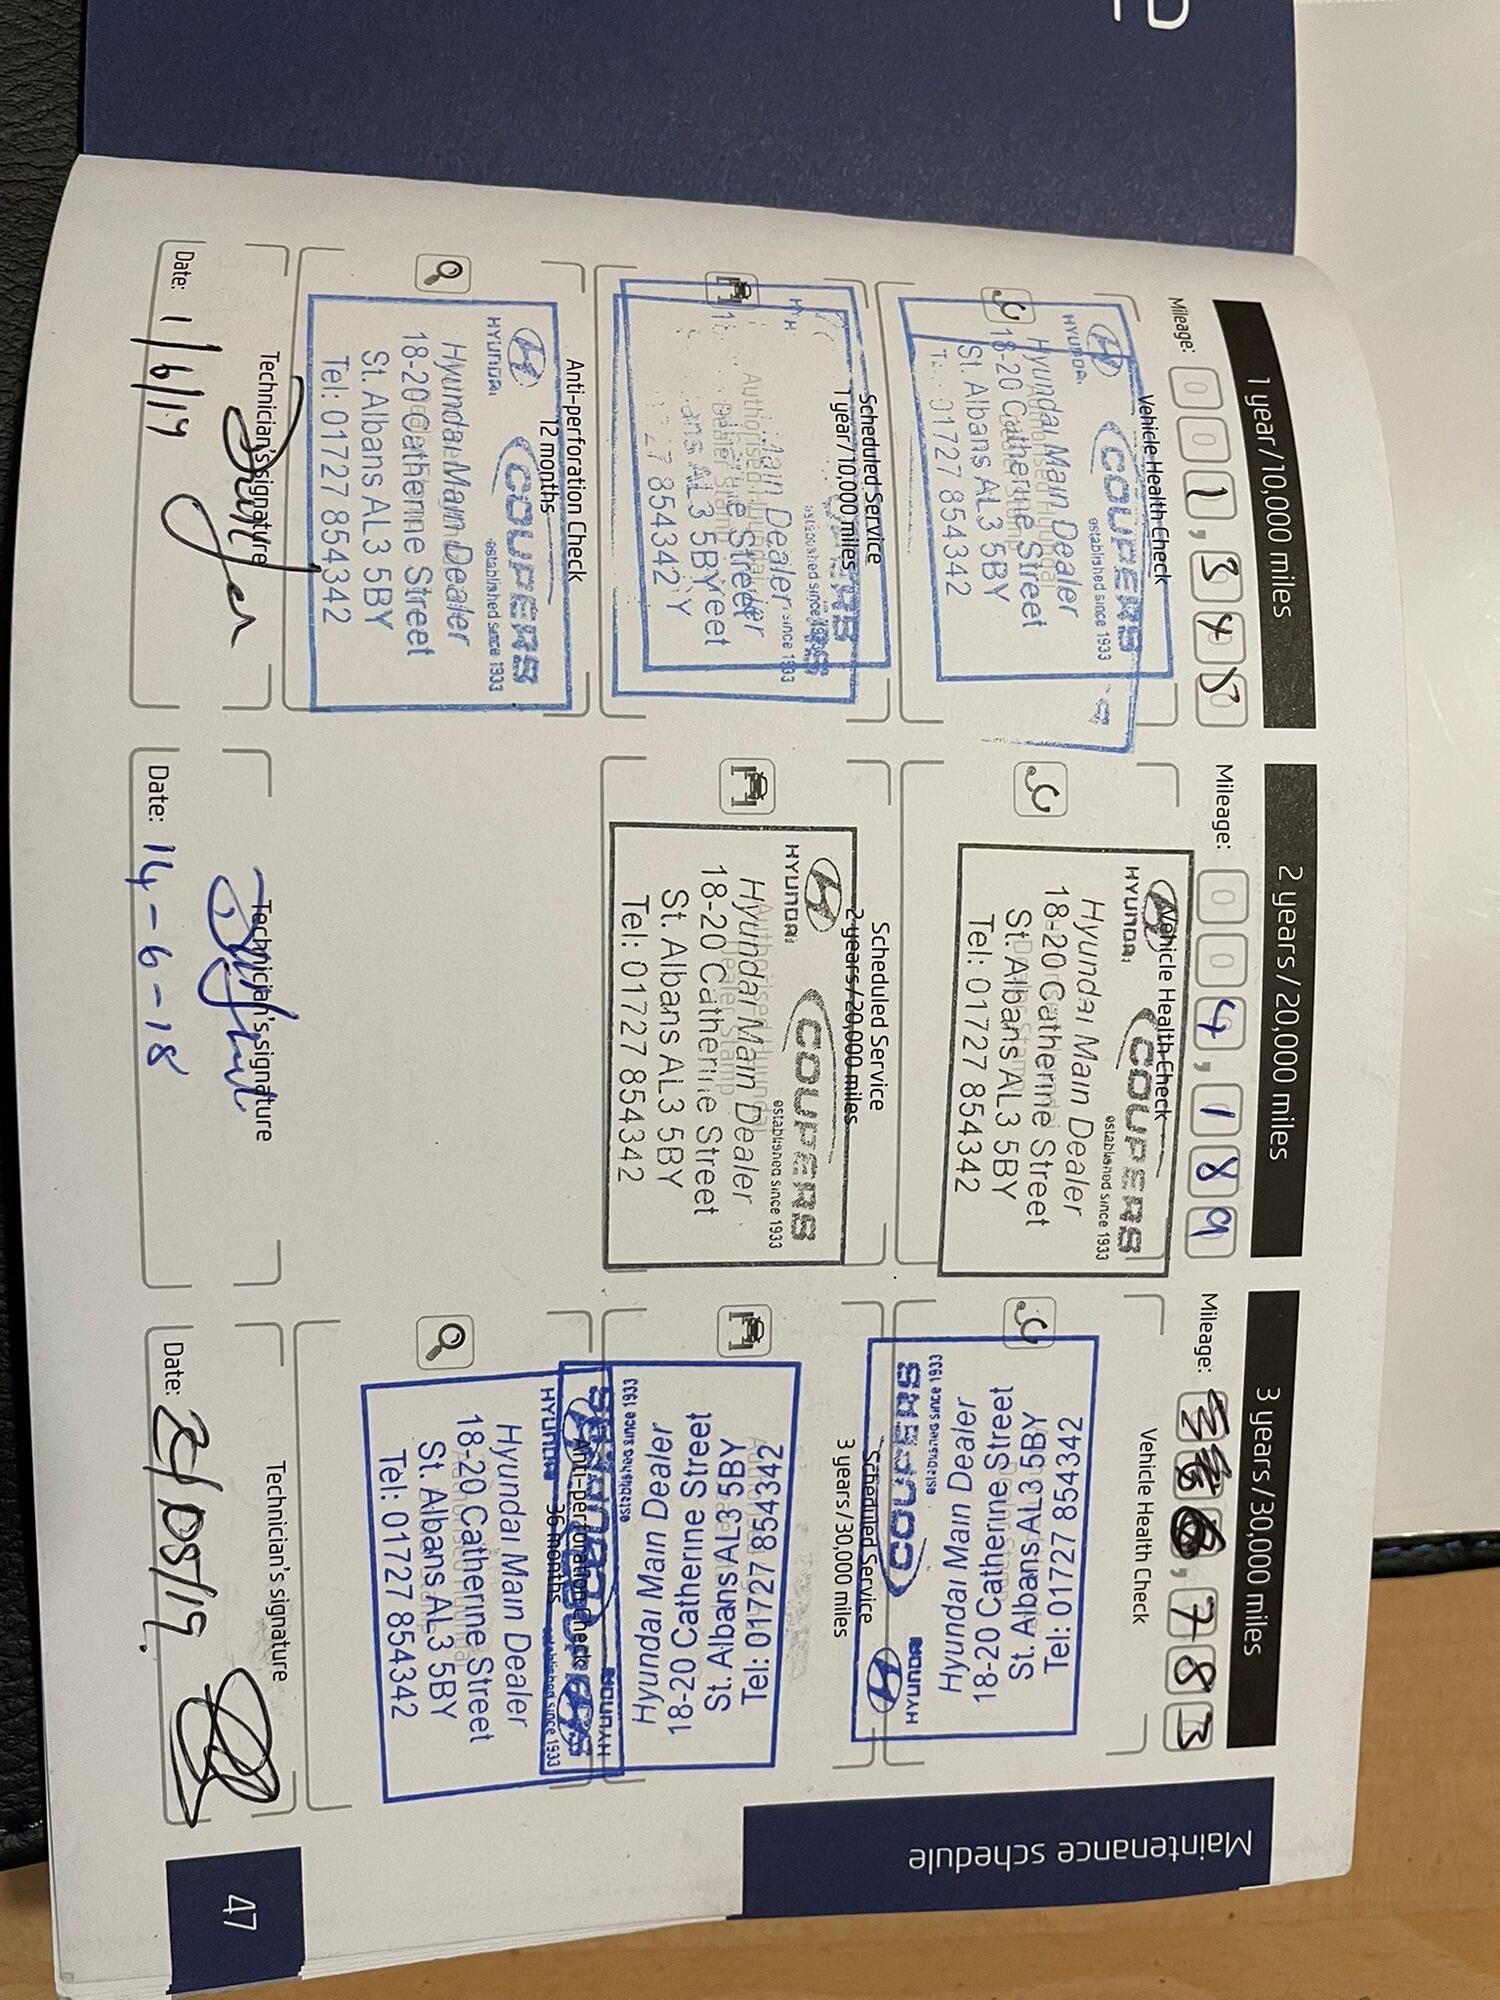 1 year/10,000 miles
Mileage: 001,345
Vehicle Health Check
HYUNDAI COUPERS
established since 1933
Hyundai Main Dealer
18-20 Catherine Street
St. Albans AL3 5BY
Tel: 01727 854342
Scheduled Service
1 year/10,000 miles
established since 1933
Main Dealer
Street
AL3 5BY
854342
Anti-perforation Check
12 months
HYUNDAI COUPERS
established since 1933
Hyundai Main Dealer
18-20 Catherine Street
St. Albans AL3 5BY
Tel: 01727 854342
Technician's signature
Date: 1/6/17
2 years/20,000 miles
Mileage: 004,189
Vehicle Health Check
HYUNDAI COUPERS
established since 1933
Hyundai Main Dealer
18-20 Catherine Street
St. Albans AL3 5BY
Tel: 01727 854342
Scheduled Service
2 years/20,000 miles
HYUNDAI COUPERS
established since 1933
Hyundai Main Dealer
18-20 Catherine Street
St. Albans AL3 5BY
Tel: 01727 854342
Technician's signature
Date: 14-6-18
3 years/30,000 miles
Mileage: ,783
Vehicle Health Check
Tel: 01727 854342
St. Albans AL3 5BY
18-20 Catherine Street
Hyundai Main Dealer
established since 1933
HYUNDAI COUPERS
Scheduled Service
3 years/30,000 miles
Tel: 01727 854342
St. Albans AL3 5BY
18-20 Catherine Street
Hyundai Main Dealer
established since 1933
HYUNDAI COUPERS
Anti-perforation Check
36 months
HYUNDAI COUPERS
established since 1933
Hyundai Main Dealer
18-20 Catherine Street
St. Albans AL3 5BY
Tel: 01727 854342
Technician's signature
Date: 21/05/19.
Maintenance schedule
47